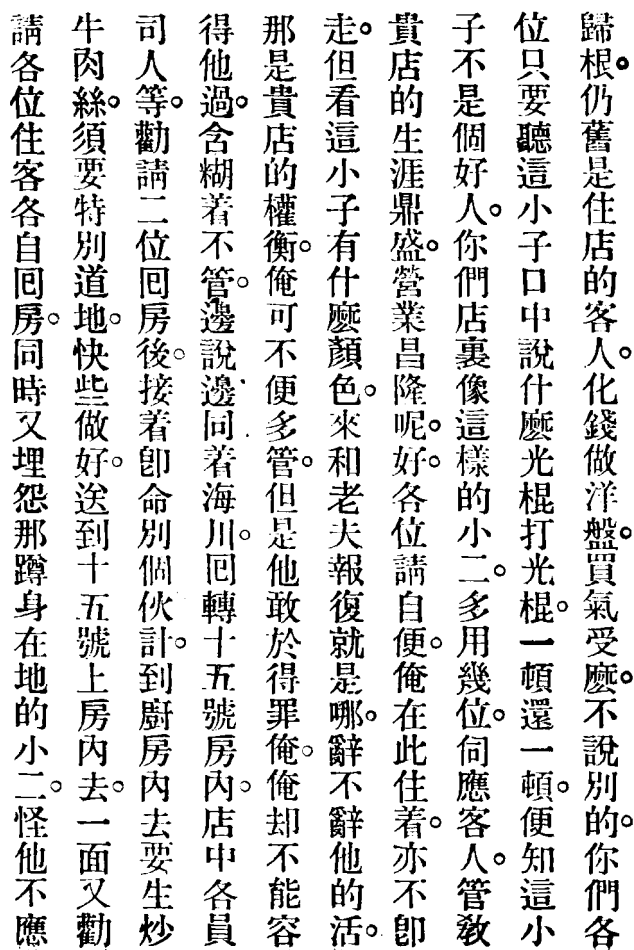 歸根。仍舊是住店的客人。化錢做洋盤。買氣受麽。不說別的。你們各
位只要聽這小子口中說什麽光棍打光棍。一頓還一頓。便知這小
子不是個好人。你們店裏像這樣的小二。多用幾位。伺應客人。管教
貴店的生涯鼎盛。營業昌隆呢。好。各位請自便。俺在此住着。亦不卽
走。但看這小子有什麽顏色。來和老夫報復就是哪。辭不辭他的活。
那是貴店的權衡。俺可不便多管。但是他敢於得罪俺。俺却不能容
得他過。含糊着不管。邊說邊同着海川。囘轉十五號房內。店中各員
司人等。勸請二位囘房後。接着卽命別個伙計。到廚房內去要生炒
牛肉絲。須要特別道地。快些做好。送到十五號上房內去。一面又勸
請各位住客各自囘房。同時又埋怨那蹲身在地的小二。怪他不應